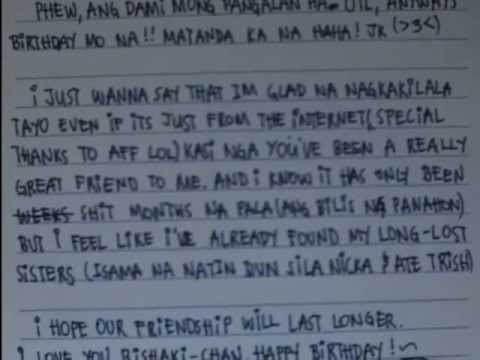 PHEW, ANG DAMI MONG PANGALAN HA. LOL, ANYWAYS
BIRTHDAY MO NA!! MATANDA KA NA HAHA! JK (>3<)
I JUST WANNA SAY THAT IM GLAD NA NAGKAKILALA
TAYO EVEN IF ITS JUST FROM THE INTERNET(SPECIAL
THANKS TO AFF LOL) KASI NGA YOU'VE BEEN A REALLY
GREAT FRIEND TO ME. AND I KNOW IT HAS ONLY BEEN
WEEKS SHIT MONTHS NA PALA(ANG BILIS NG PANAHON)
BUT I FEEL LIKE I'VE ALREADY FOUND MY LONG-LOST
SISTERS (ISAMA NA NATIN DUN SILA NICKA & ATE TRISH)
I HOPE OUR FRIENDSHIP WILL LAST LONGER.
I LOVE YOU BISHAKI-CHAN. HAPPY BIRTHDAY!~